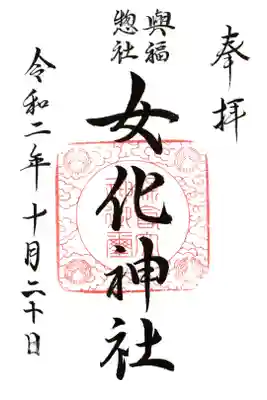 奉拝
興福
惣社
女化神社
令和二年十月二十日